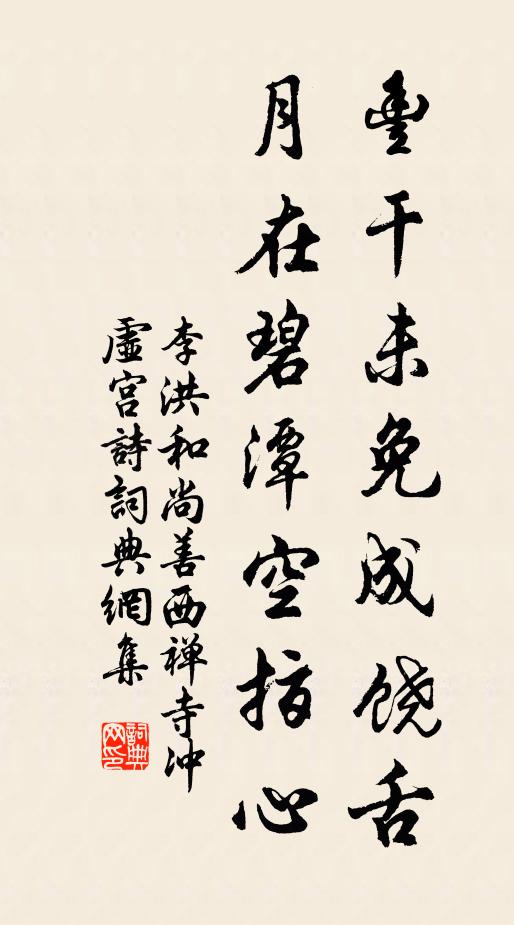 豐干未免成饶舌
月在碧潭空指心
李洪和尚善西禅寺冲
虛宫詩詞典網集
詞典
网印